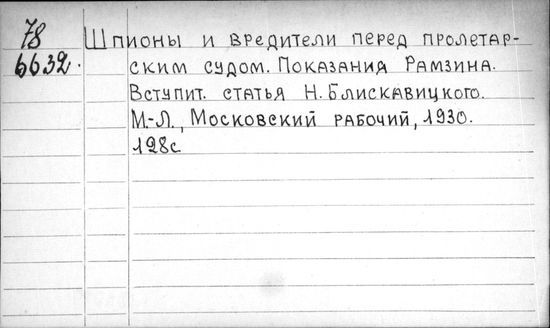 78
6632.
Шпионы и вредители перед пролетар-
ским судом. Показания Рамзина.
Вступит. статья Н. Блискавицкого.
М.-Л., Московский рабочий, 1930.
128с